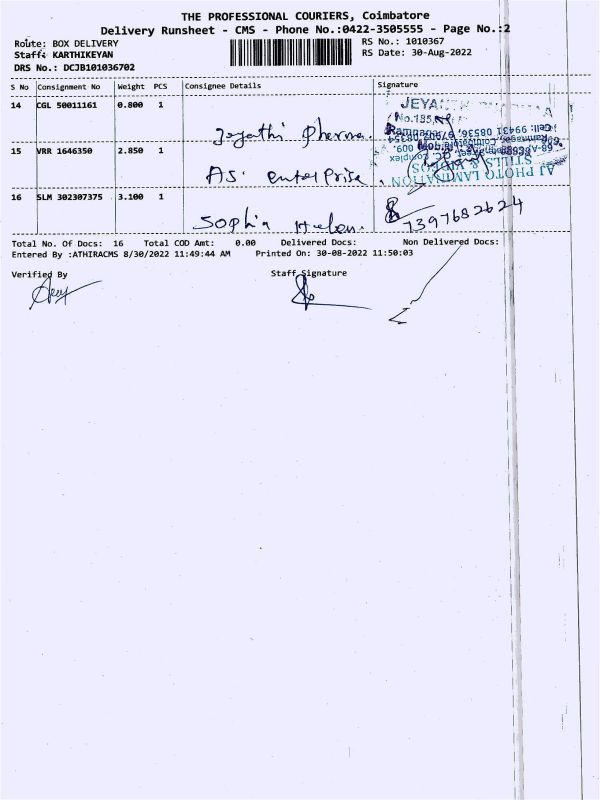 THE PROFESSIONAL COURIERS, Coimbatore
Delivery Runsheet - CMS - Phone No.:0422-3505555 - Page No.:2
Route: BOX DELIVERY
RS No.: 1010367
Staff: KARTHIKEYAN
RS Date: 30-Aug-2022
DRS No.: DCJB101036702
S No Consignment No Weight PCS Consignee Details Signature
14 CGL 50011161 0.800 1
JEYA
No.135,
15 VRR 1646350 2.850 1
AS. enterprise.
AJ PHOTO LAMINATION
STILLS & VIDEOS
16 SLM 302307375 3.100 1
Sophia
7397682624
Total No. Of Docs: 16 Total COD Amt: 0.00 Delivered Docs: Non Delivered Docs:
Entered By :ATHIRACMS 8/30/2022 11:49:44 AM Printed On: 30-08-2022 11:50:03
Verified By Staff Signature